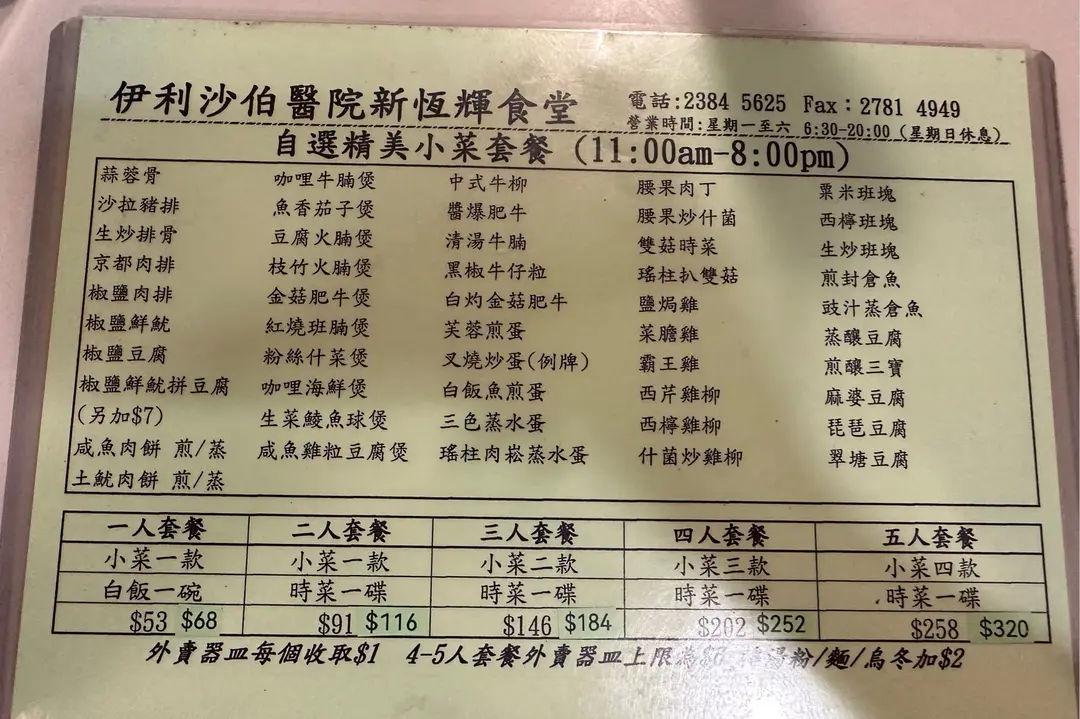 伊利沙伯醫院新恆輝食堂
電話:2384 5625 Fax：2781 4949
營業時間:星期一至六 6:30-20:00 (星期日休息)
自選精美小菜套餐 (11:00am-8:00pm)
蒜蓉骨 咖哩牛腩煲 中式牛柳 腰果肉丁 粟米班塊
沙拉豬排 魚香茄子煲 醬爆肥牛 腰果炒什菌 西檸班塊
生炒排骨 豆腐火腩煲 清湯牛腩 雙菇時菜 生炒班塊
京都肉排 枝竹火腩煲 黑椒牛仔粒 瑤柱扒雙菇 煎封倉魚
椒鹽肉排 金菇肥牛煲 白灼金菇肥牛 鹽焗雞 豉汁蒸倉魚
椒鹽鮮魷 紅燒班腩煲 芙蓉煎蛋 菜膽雞 蒸釀豆腐
椒鹽豆腐 粉絲什菜煲 叉燒炒蛋(例牌) 霸王雞 煎釀三寶
椒鹽鮮魷拼豆腐 咖哩海鮮煲 白飯魚煎蛋 西芹雞柳 麻婆豆腐
(另加$7) 生菜鯪魚球煲 三色蒸水蛋 西檸雞柳 琵琶豆腐
咸魚肉餅 煎/蒸 咸魚雞粒豆腐煲 瑤柱肉崧蒸水蛋 什菌炒雞柳 翠塘豆腐
土魷肉餅 煎/蒸
一人套餐 二人套餐 三人套餐 四人套餐 五人套餐
小菜一款 小菜一款 小菜二款 小菜三款 小菜四款
白飯一碗 時菜一碟 時菜一碟 時菜一碟 時菜一碟
$53 $68 $91 $116 $146 $184 $202 $252 $258 $320
外賣器皿每個收取$1 4-5人套餐外賣器皿上限為$6 湯粉/麵/烏冬加$2